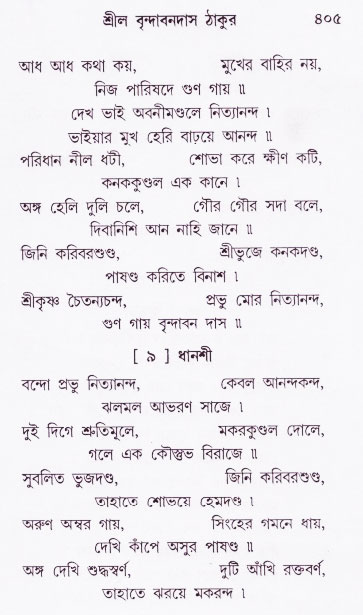 শ্রীল বৃন্দাবনদাস ঠাকুর ৪০৫
আধ আধ কথা কয়, মুখের বাহির নয়,
নিজ পারিষদে গুণ গায় ॥
দেখ ভাই অবনীমণ্ডলে নিত্যানন্দ ৷
ভাইয়ার মুখ হেরি বাঢ়য়ে আনন্দ ॥
পরিধান নীল ধটী, শোভা করে ক্ষীণ কটি,
কনককুণ্ডল এক কানে ৷
অঙ্গ হেলি দুলি চলে, গৌর গৌর সদা বলে,
দিবানিশি আন নাহি জানে ॥
জিনি করিবরশুণ্ড, শ্রীভুজে কনকদণ্ড,
পাষণ্ড করিতে বিনাশ ৷
শ্রীকৃষ্ণ চৈতন্যচন্দ, প্রভু মোর নিত্যানন্দ,
গুণ গায় বৃন্দাবন দাস ॥
[ ৯ ] ধানশী
বন্দো প্রভু নিত্যানন্দ, কেবল আনন্দকন্দ,
ঝলমল আভরণ সাজে ৷
দুই দিগে শ্রুতিমূলে, মকরকুণ্ডল দোলে,
গলে এক কৌস্তুভ বিরাজে ॥
সুবলিত ভুজদণ্ড, জিনি করিবরশুণ্ড,
তাহাতে শোভয়ে হেমদণ্ড ৷
অরুণ অম্বর গায়, সিংহের গমনে ধায়,
দেখি কাঁপে অসুর পাষণ্ড ॥
অঙ্গ দেখি শুদ্ধস্বর্ণ, দুটি আঁখি রক্তবর্ণ,
তাহাতে ঝরয়ে মকরন্দ ৷